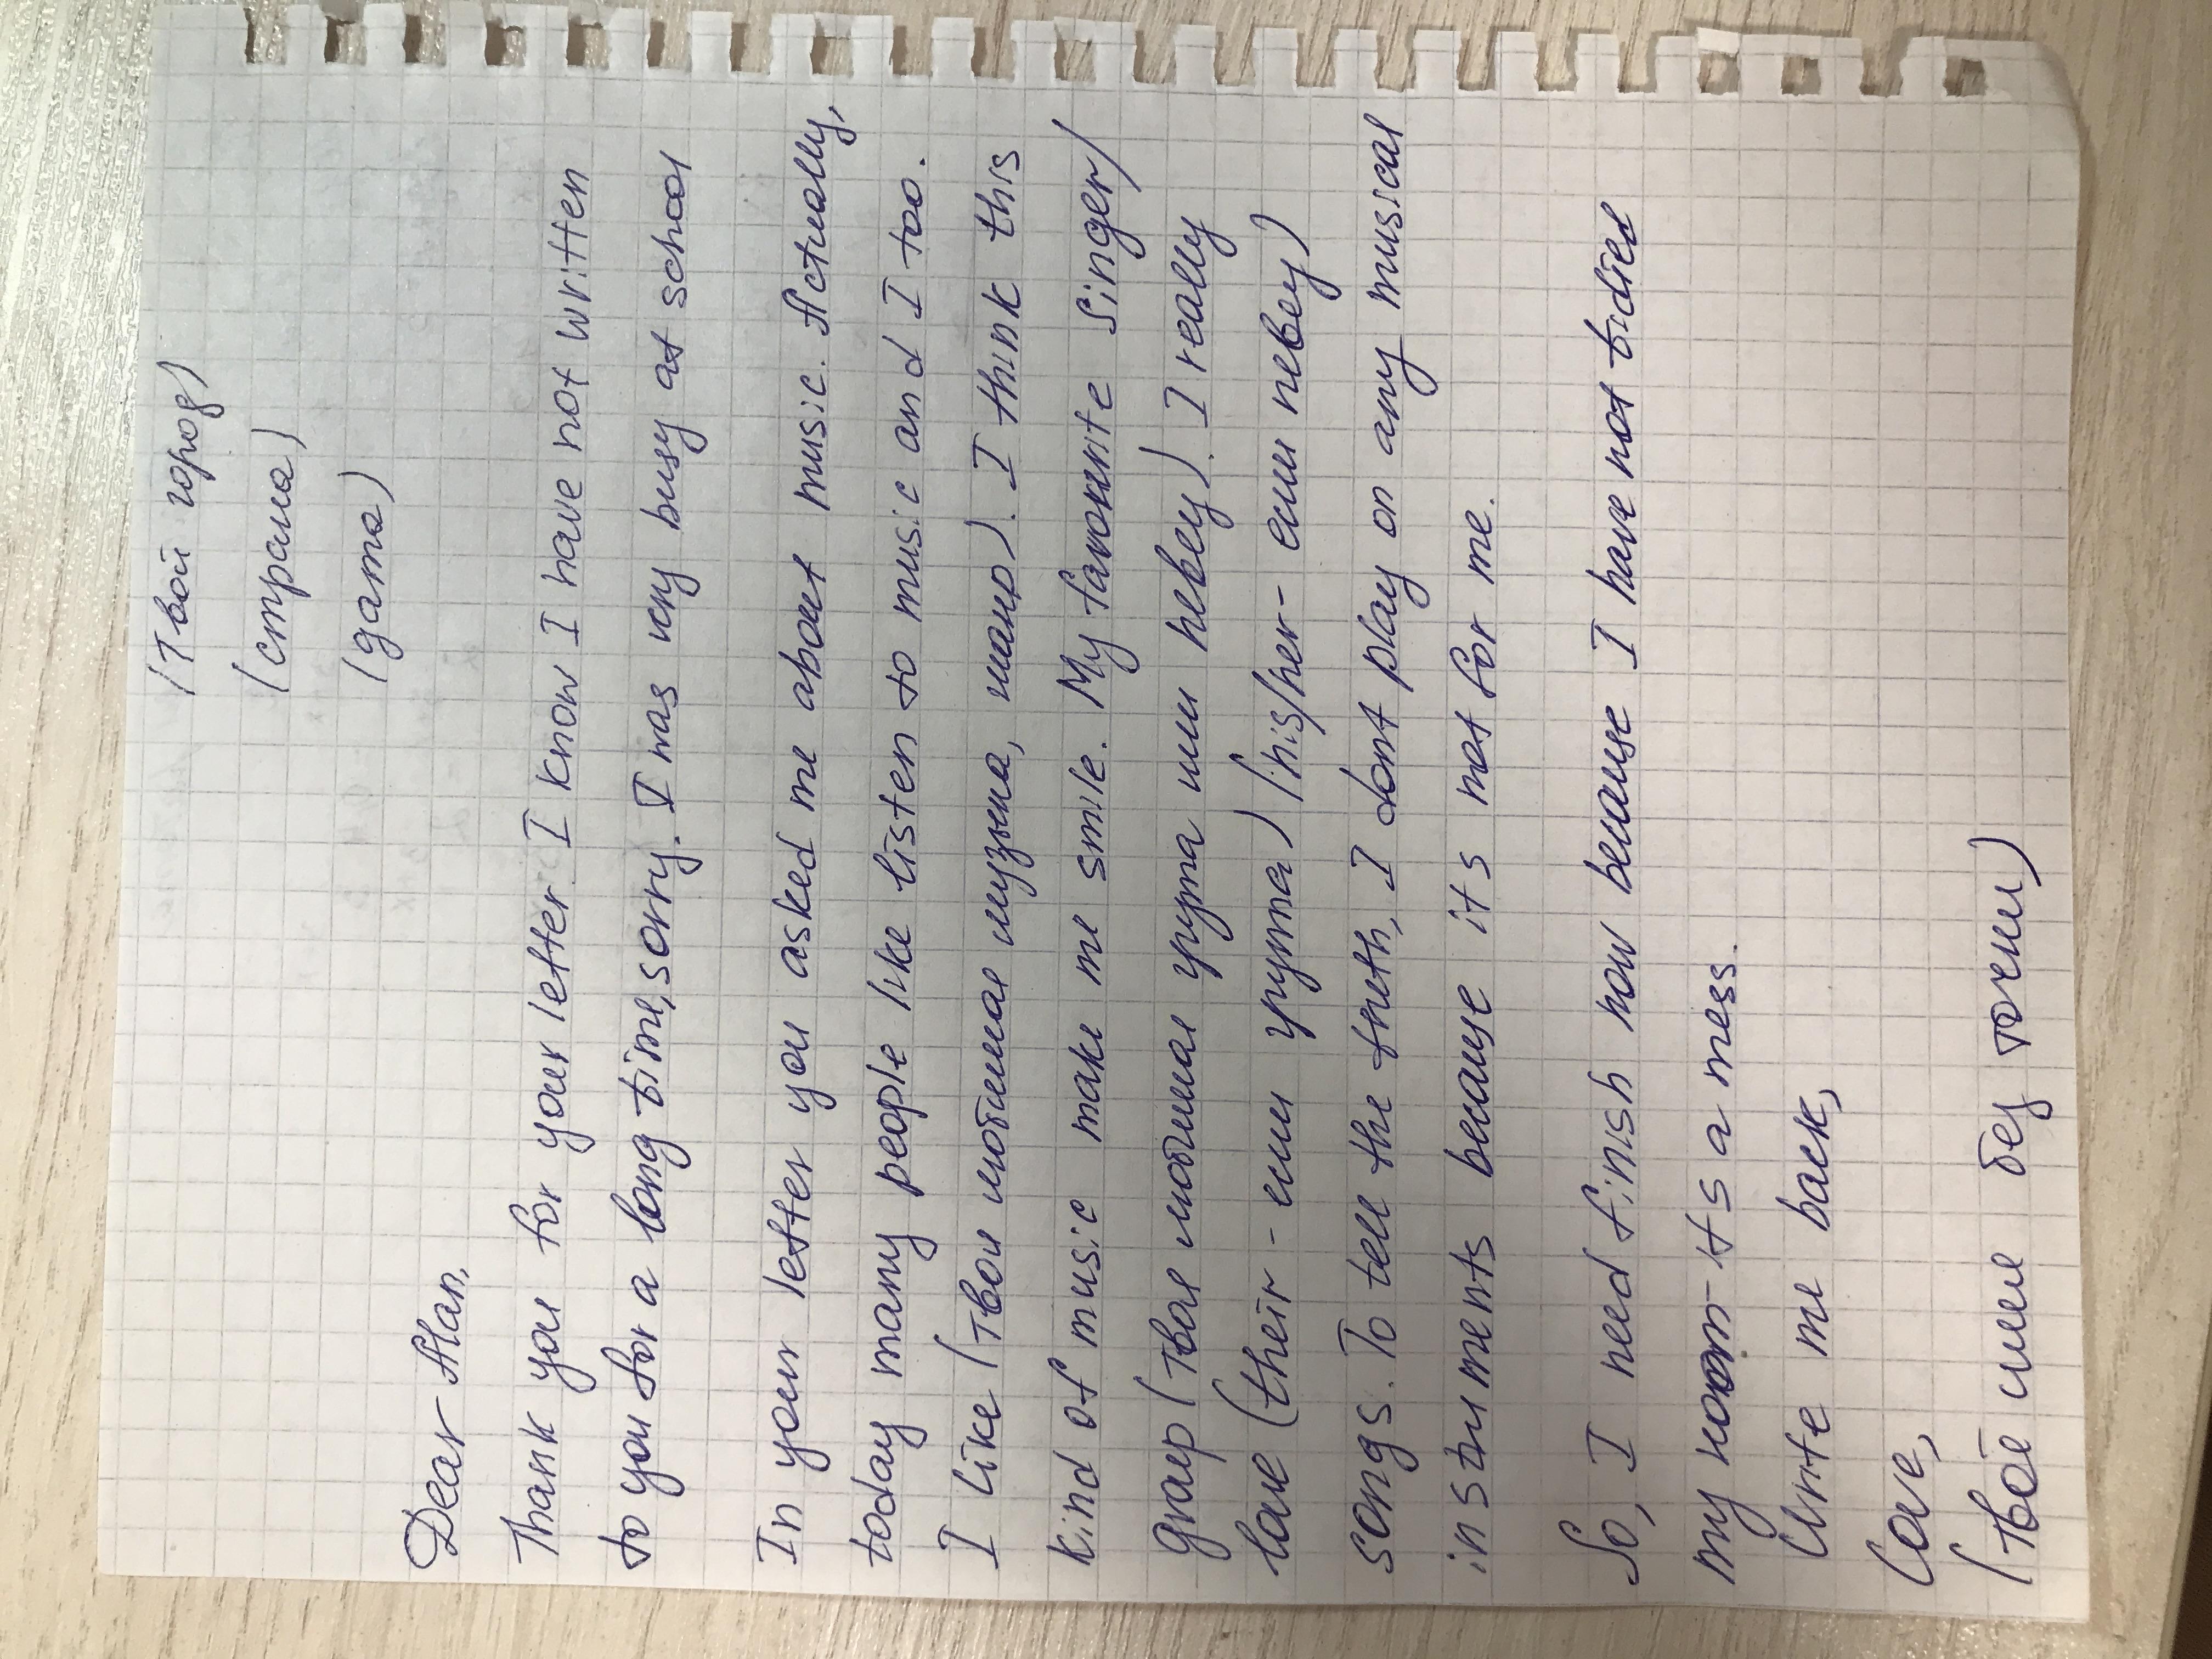 (твой город)
(страна)
(дата)
Dear Alan,
Thank you for your letter. I know I have not written
to you for a long time, sorry. I was very busy at school
In your letter you asked me about music. Actually,
today many people like listen to music and I too.
I like (твоя любимая музыка, жанр). I think this
kind of music make me smile. My favourite singer/
group (твоя любимая группа или певец). I really
love (their - если группа) (his/her - если певец)
songs. To tell the truth, I dont play on any musical
instruments because it s not for me.
So, I need finish now because I have not tidied
my room - it s a mess.
Write me back,
Love,
(твоё имя без точки)